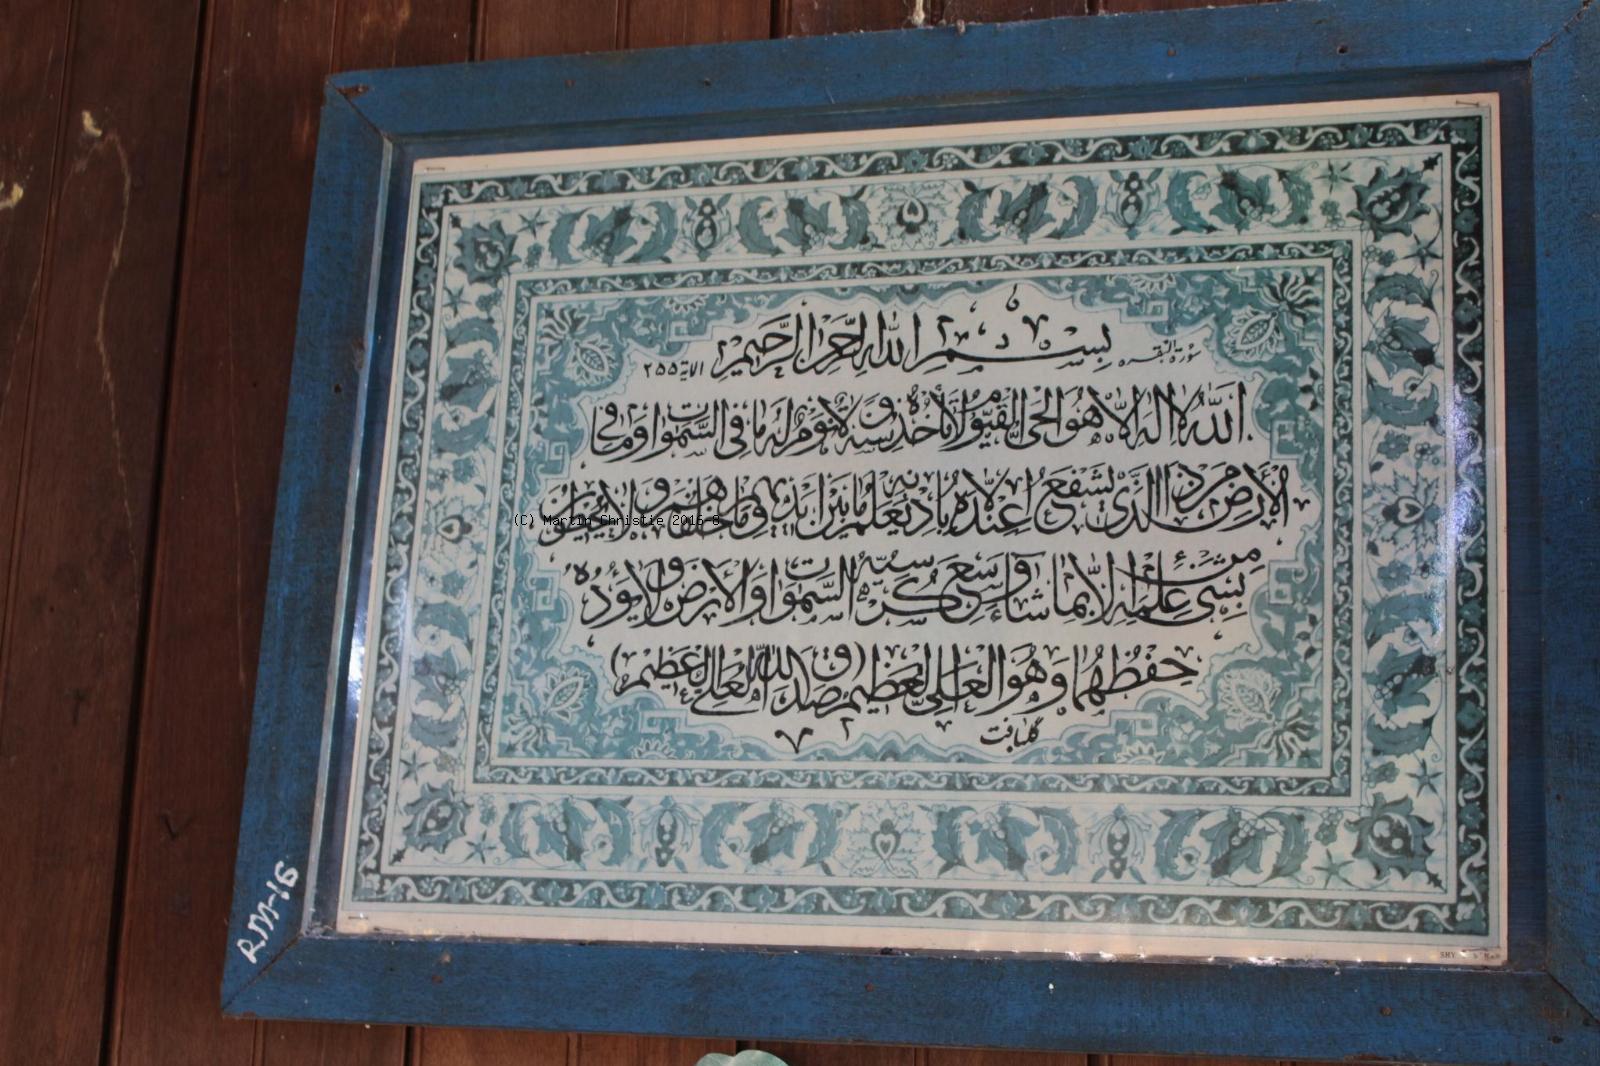 سورة البقره
بِسْمِ اللهِ الرَّحْمٰنِ الرَّحِيْمِ
الاية ٢٥٥
اَللهُ لَا اِلٰهَ اِلَّا هُوَ الْحَىُّ الْقَيُّوْمُ لَا تَأْخُذُهٗ سِنَةٌ وَّلَا نَوْمٌ لَهٗ مَا فِى السَّمٰوَاتِ وَمَا فِى
الْاَرْضِ مَنْ ذَا الَّذِىْ يَشْفَعُ عِنْدَهٗ اِلَّا بِاِذْنِهٖ يَعْلَمُ مَا بَيْنَ اَيْدِيْهِمْ وَمَا خَلْفَهُمْ وَلَا يُحِيْطُوْنَ
بِشَىْءٍ مِنْ عِلْمِهٖ اِلَّا بِمَا شَاءَ وَسِعَ كُرْسِيُّهُ السَّمٰوَاتِ وَالْاَرْضَ وَلَا يَؤُدُهٗ
حِفْظُهُمَا وَهُوَ الْعَلِىُّ الْعَظِيْمُ (صَدَقَ اللهُ الْعَلِىُّ الْعَظِيْمُ)
(C) Martin Christie 2016-8
R.M-16